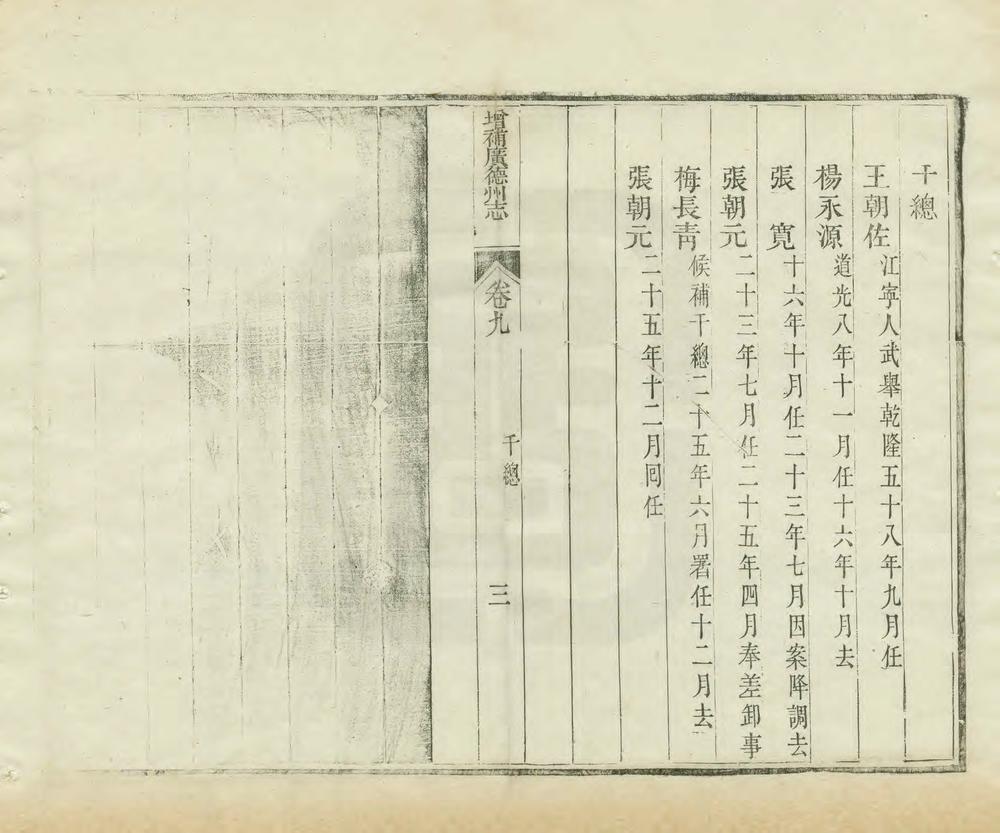 千總
王朝佐江寧人武舉乾隆五十八年九月任
楊永源道光八年十一月任十六年十月去
張寬十六年十月任二十三年七月因案降調去
張朝元二十三年七月任二十五年四月奉差卸事
梅長青候補千總二十五年六月署任十二月去
張朝元二十五年十二月囘任
增補廣德州志
卷九
千總
三